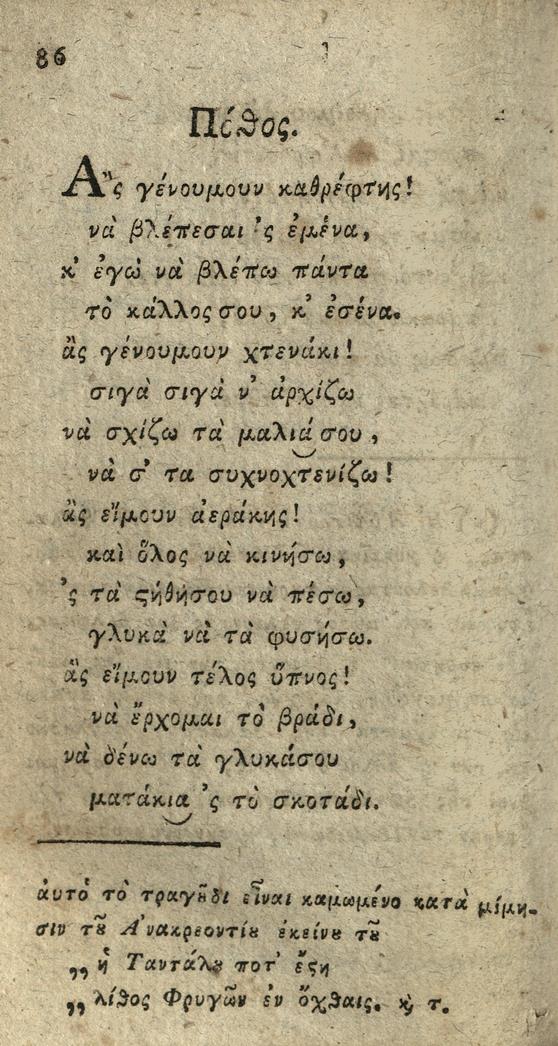 86
Πόθος.
Ἂς γένουμουν καθρέφτης!
νὰ βλέπεσαι 'ς ἐμένα,
κ' ἐγὼ νὰ βλέπω πάντα
τὸ κάλλος σου, κ' ἐσένα.
ἂς γένουμουν χτενάκι!
σιγὰ σιγὰ ν' ἀρχίζω
νὰ σχίζω τὰ μαλιά σου,
νὰ σ' τα συχνοχτενίζω!
ἂς εἴμουν ἀεράκης!
καὶ ὅλος νὰ κινήσω,
'ς τὰ ϛήθήσου νὰ πέσω,
γλυκὰ νὰ τὰ φυσήσω.
ἂς εἴμουν τέλος ὕπνος!
νὰ ἔρχομαι τὸ βράδι,
νὰ δένω τὰ γλυκάσου
ματάκια 'ς τὸ σκοτάδι.
ἀυτὸ τὸ τραγȣ͂δι εἶναι καμωμένο κατὰ μίμη-
σιν τȣ͂ Ἀνακρεοντίȣ ἐκείνȣ τȣ͂
„ ἡ Ταντάλȣ ποτ' ἔϛη
„ λίθος Φρυγῶν ἐν ὄχθαις. ϗ τ.